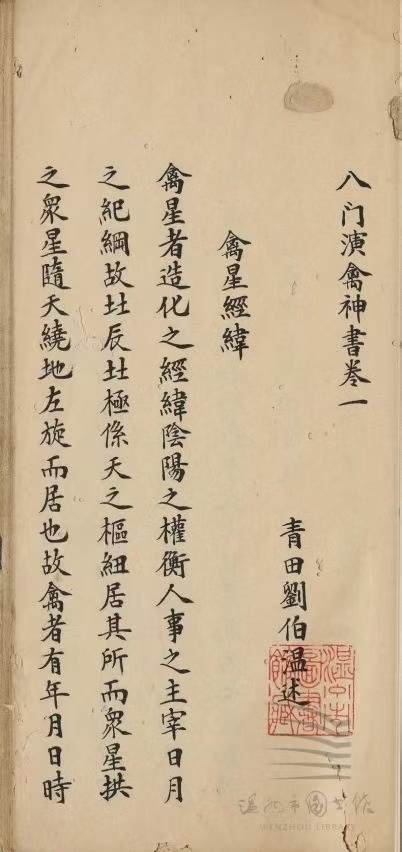 八门演禽神書卷一
青田劉伯温述
禽星經緯
禽星者造化之經緯陰陽之權衡人事之主宰日月
之紀綱故北辰北極係天之樞紐居其所而衆星拱
之衆星隨天繞地左旋而居也故禽者有年月日時
温州市图书馆
WENZHOU LIBRARY